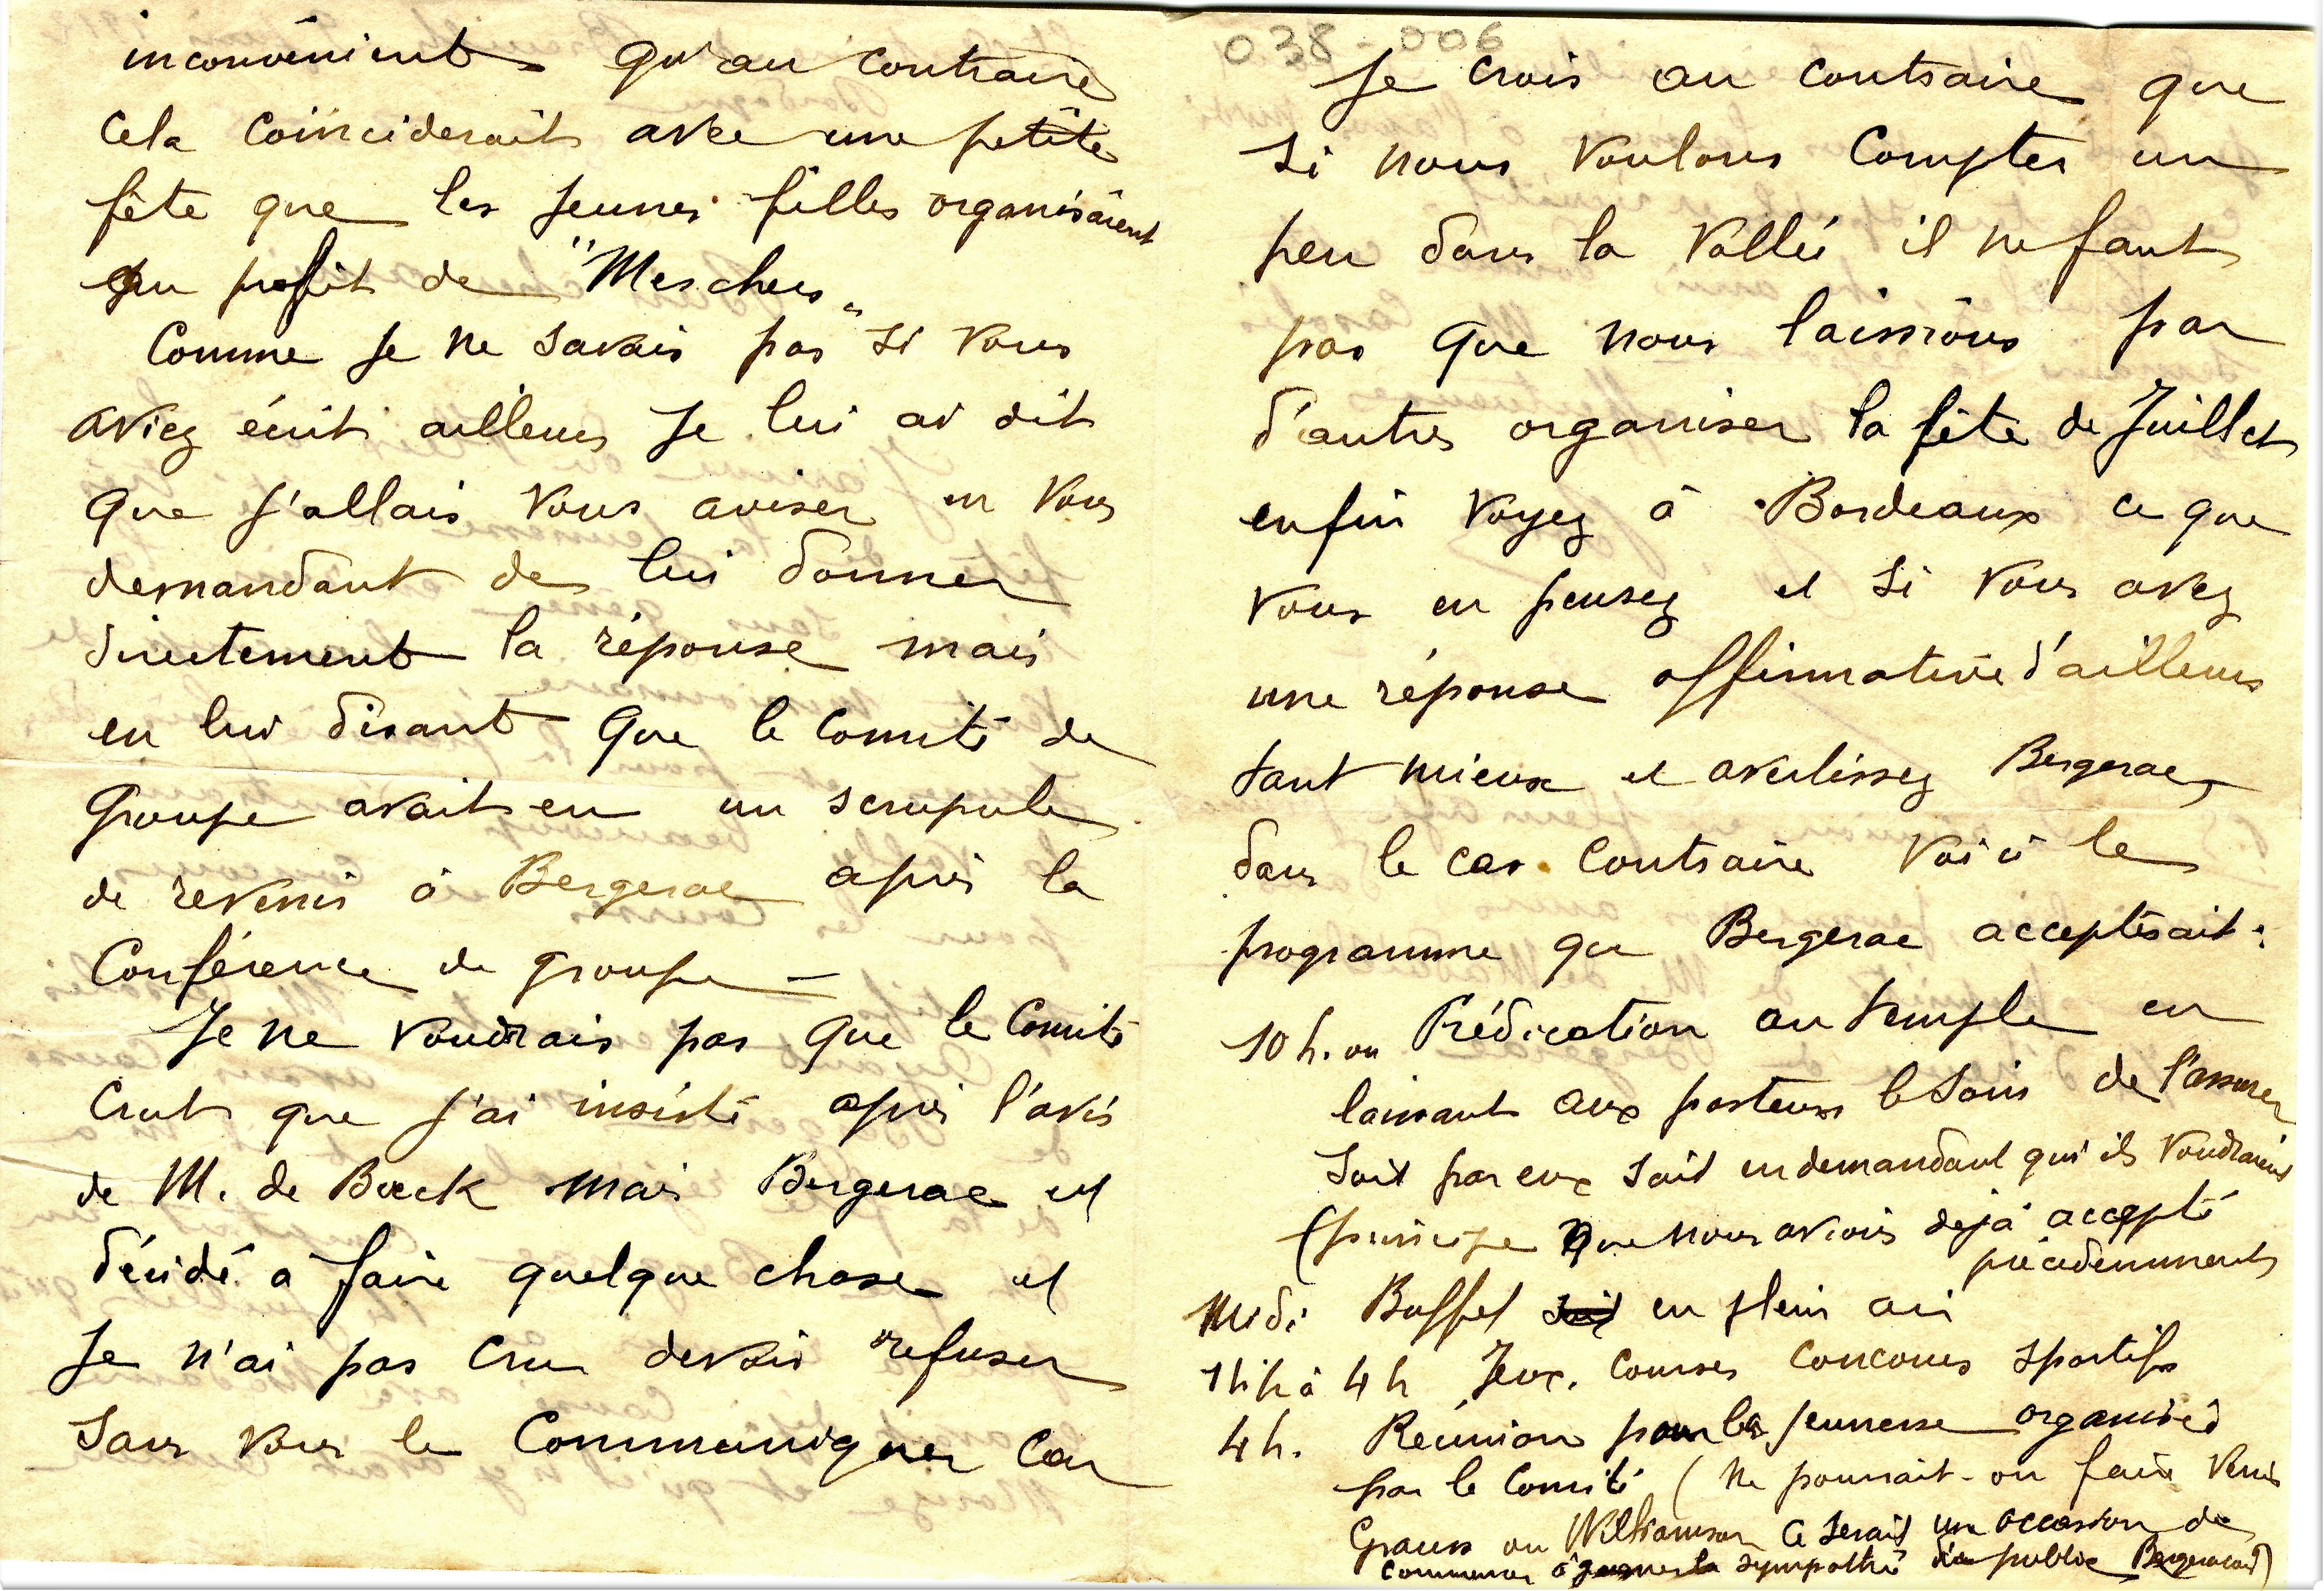 inconvénients qu'au contraire
cela coïnciderait avec une petite
fête que les jeunes filles organisaient
au profit de "Meschers"
Comme je ne savais pas si vous
aviez écrit ailleurs je lui ai dit
que j'allais vous aviser en vous
demandant de lui donner
directement la réponse mais
en lui disant que le Comité de
Groupe avait eu un scrupule
de revenir à Bergerac après la
Conférence de groupe —
Je ne voudrais pas que le Comité
crut que j'ai insisté après l'avis
de M. de Boeck mais Bergerac est
décidé à faire quelque chose et
je n'ai pas cru devoir refuser
sans vous le communiquer car
038-006
Je crois au contraire que
si nous voulons compter un
peu dans la Vallée il ne faut
pas que nous laissions par
d'autres organiser la fête de Juillet
enfin voyez à Bordeaux ce que
vous en pensez et si vous avez
une réponse affirmative d'ailleurs
tant mieux et avertissez Bergerac,
dans le cas contraire voici le
programme que Bergerac accepterait :
10 h. ou Prédication au temple en
laissant aux pasteurs le soin de l'assurer
soit par eux soit en demandant qui ils voudraient
(principe que nous avions déjà accepté
précédemment
Midi Buffet soit en plein air
1h½ à 4 h Jeux, courses concours sportifs
4 h. Réunion pour la jeunesse organisée
par le Comité (Ne pourrait-on faire venir
Grauss ou Williamson ce serait une occasion de
commencer à gagner la sympathie du public Bergeracois)